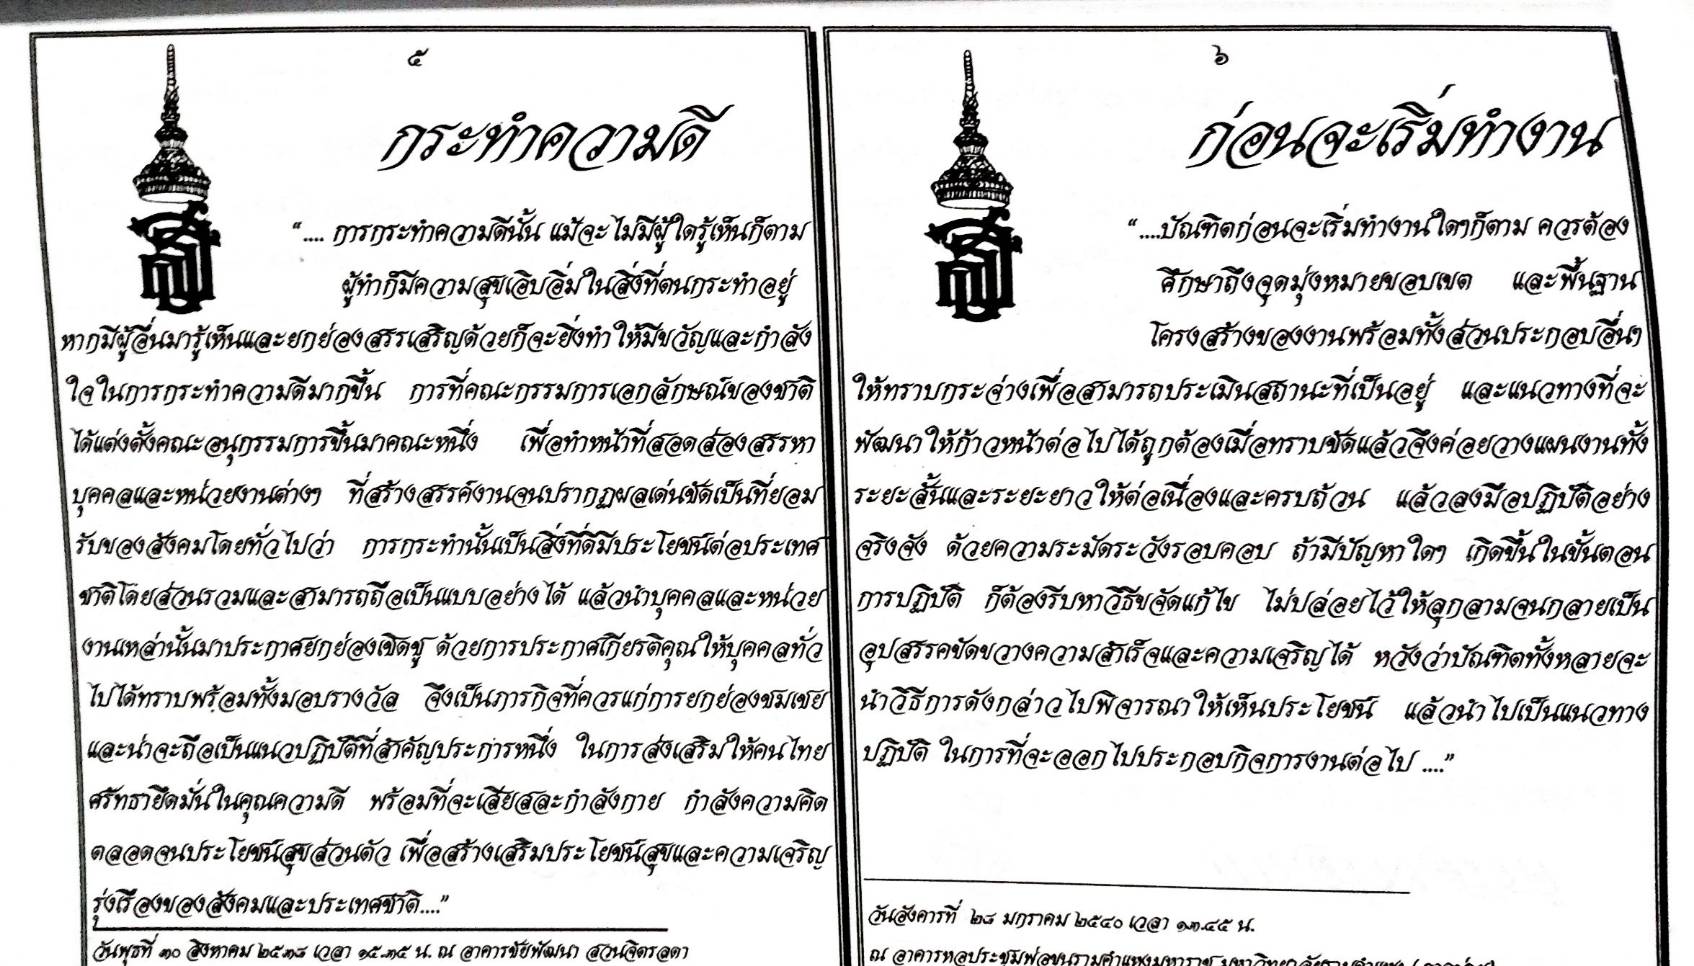 ๕
กระทำความดี
“.... การกระทำความดีนั้น แม้จะไม่มีผู้ใดรู้เห็นก็ตาม
ผู้ทำก็มีความสุขเอิบอิ่มในสิ่งที่ตนกระทำอยู่
หากมีผู้อื่นมารู้เห็นและยกย่องสรรเสริญด้วยก็จะยิ่งทำให้มีขวัญและกำลัง
ใจในการกระทำความดีมากขึ้น การที่คณะกรรมการเอกลักษณ์ของชาติ
ได้แต่งตั้งคณะอนุกรรมการขึ้นมาคณะหนึ่ง เพื่อทำหน้าที่สอดส่องสรรหา
บุคคลและหน่วยงานต่างๆ ที่สร้างสรรค์งานจนปรากฏผลเด่นชัดเป็นที่ยอม
รับของสังคมโดยทั่วไปว่า การกระทำนั้นเป็นสิ่งที่ดีมีประโยชน์ต่อประเทศ
ชาติโดยส่วนรวมและสามารถถือเป็นแบบอย่างได้ แล้วนำบุคคลและหน่วย
งานเหล่านั้นมาประกาศยกย่องเชิดชู ด้วยการประกาศเกียรติคุณให้บุคคลทั่ว
ไปได้ทราบพร้อมทั้งมอบรางวัล จึงเป็นภารกิจที่ควรแก่การยกย่องชมเชย
และน่าจะถือเป็นแนวปฏิบัติที่สำคัญประการหนึ่ง ในการส่งเสริมให้คนไทย
ศรัทธายึดมั่นในคุณความดี พร้อมที่จะเสียสละกำลังกาย กำลังความคิด
ตลอดจนประโยชน์สุขส่วนตัว เพื่อสร้างเสริมประโยชน์สุขและความเจริญ
รุ่งเรืองของสังคมและประเทศชาติ....”
วันพุธที่ ๓๐ สิงหาคม ๒๕๓๘ เวลา ๑๕.๓๕ น. ณ อาคารชัยพัฒนา สวนจิตรลดา
๖
ก่อนจะเริ่มทำงาน
“....บัณฑิตก่อนจะเริ่มทำงานใดๆก็ตาม ควรต้อง
ศึกษาถึงจุดมุ่งหมายขอบเขต และพื้นฐาน
โครงสร้างของงานพร้อมทั้งส่วนประกอบอื่นๆ
ให้ทราบกระจ่างเพื่อสามารถประเมินสถานะที่เป็นอยู่ และแนวทางที่จะ
พัฒนาให้ก้าวหน้าต่อไปได้ถูกต้องเมื่อทราบชัดแล้วจึงค่อยวางแผนงานทั้ง
ระยะสั้นและระยะยาวให้ต่อเนื่องและครบถ้วน แล้วลงมือปฏิบัติอย่าง
จริงจัง ด้วยความระมัดระวังรอบคอบ ถ้ามีปัญหาใดๆ เกิดขึ้นในขั้นตอน
การปฏิบัติ ก็ต้องรีบหาวิธีขจัดแก้ไข ไม่ปล่อยไว้ให้ลุกลามจนกลายเป็น
อุปสรรคขัดขวางความสำเร็จและความเจริญได้ หวังว่าบัณฑิตทั้งหลายจะ
นำวิธีการดังกล่าวไปพิจารณาให้เห็นประโยชน์ แล้วนำไปเป็นแนวทาง
ปฏิบัติ ในการที่จะออกไปประกอบกิจการงานต่อไป ....”
วันอังคารที่ ๒๘ มกราคม ๒๕๔๐ เวลา ๑๓.๔๕ น.
ณ อาคารหอประชุมพ่อขุนรามคำแหงมหาราช มหาวิทยาลัยรามคำแหง